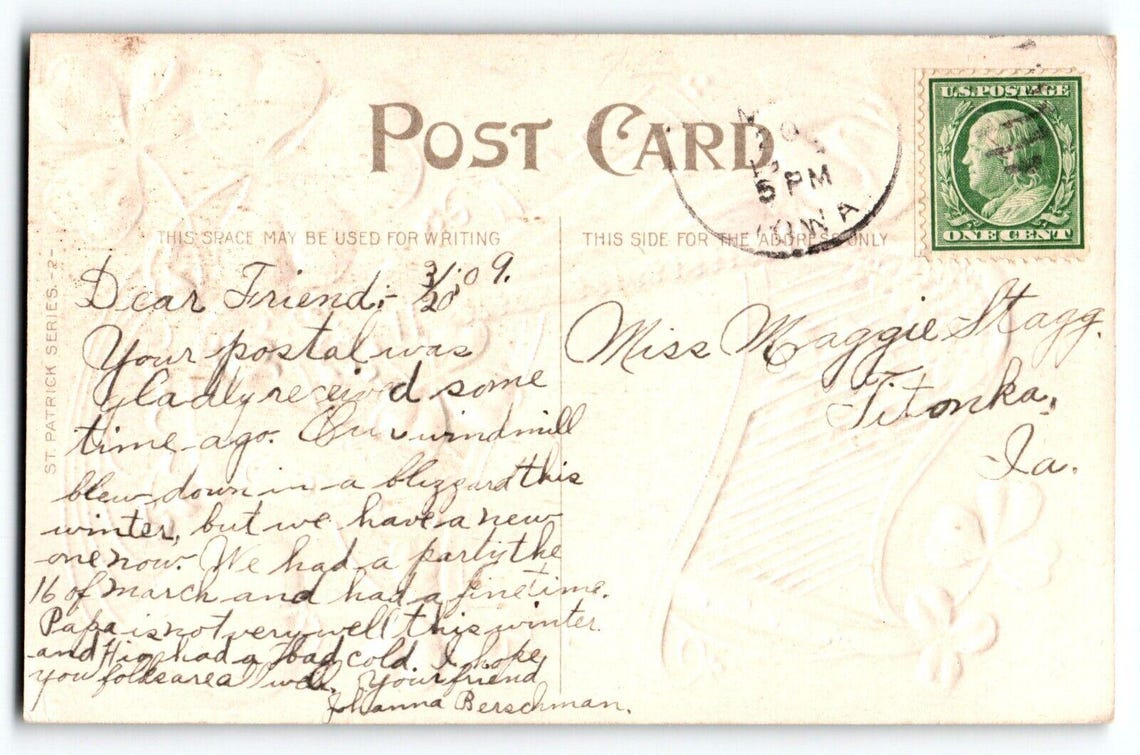 POST CARD
U.S. POSTAGE
ONE CENT
5 PM
IOWA
THIS SPACE MAY BE USED FOR WRITING
THIS SIDE FOR THE ADDRESS ONLY
ST. PATRICK SERIES. -2-
Dear Friend:- 3/20 '09.
Your postal was
gladly received some
time ago. Our windmill
blew down in a blizzard this
winter, but we have a new
one now. We had a party the
16 of March and had a fine time.
Papa is not very well this winter
and had a bad cold. I hope
you folks are all well. Your friend
Johanna Berschman.
Miss Maggie Stagg.
Titonka,
Ia.